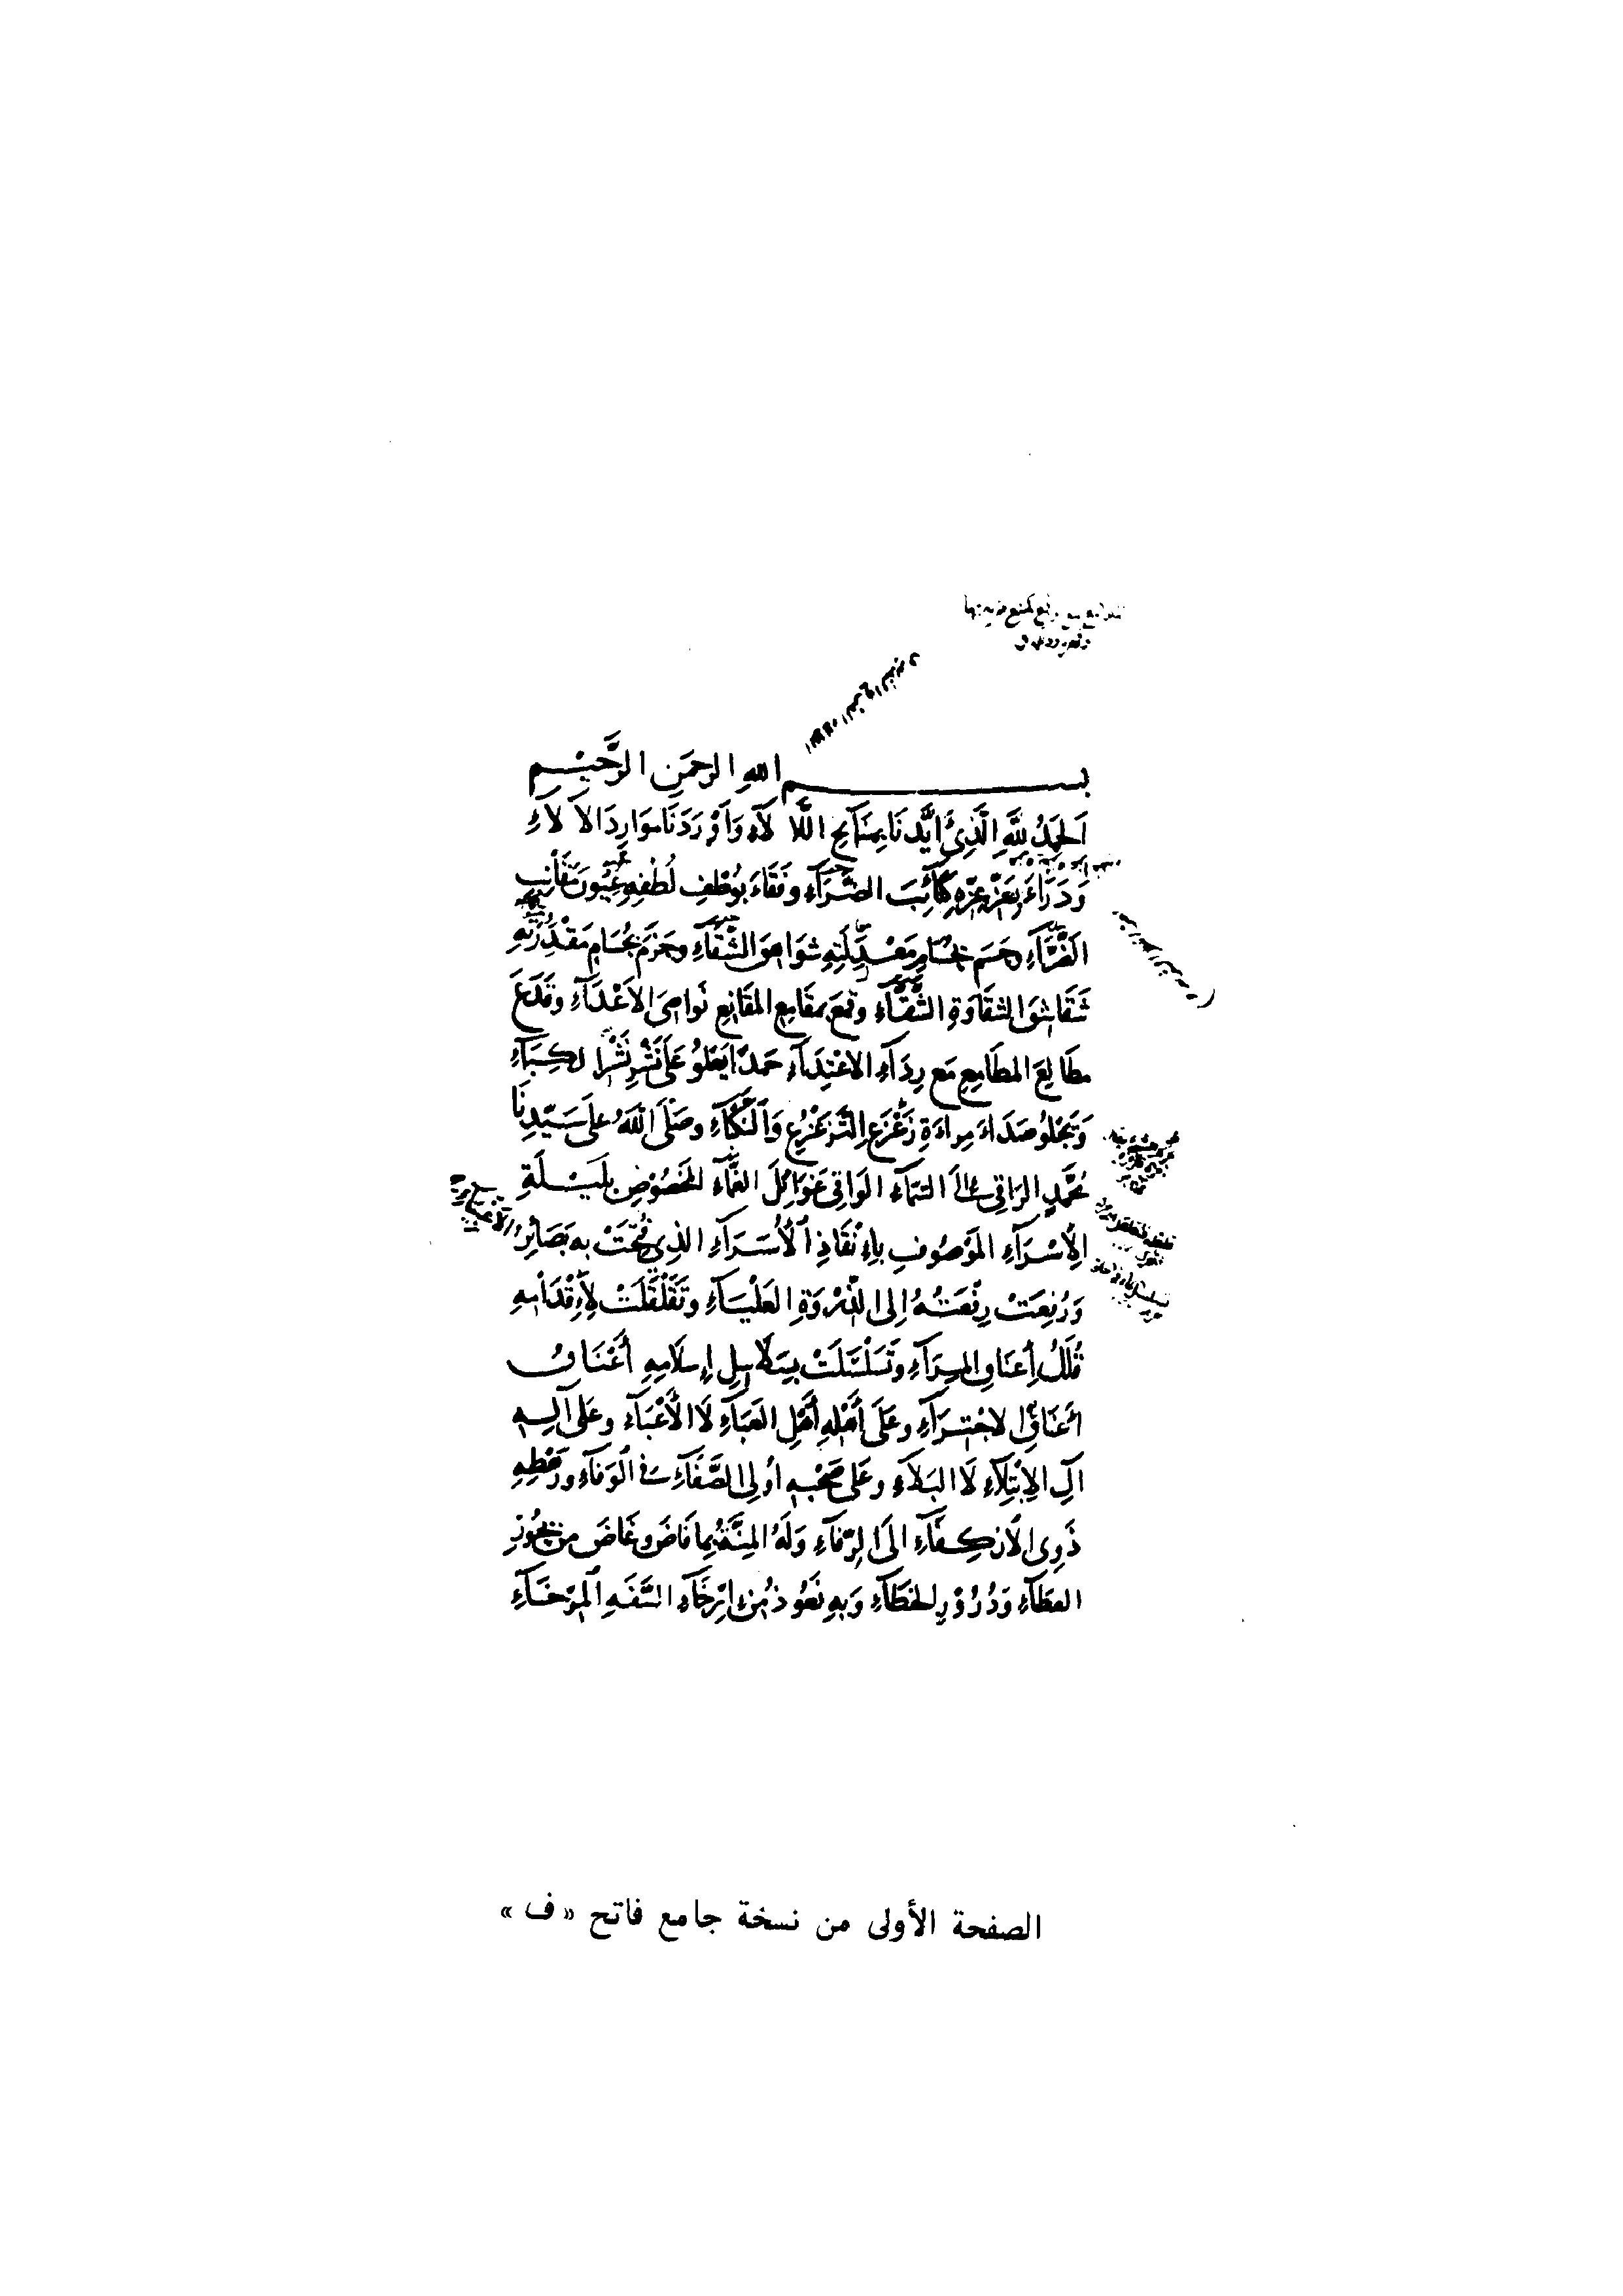 بســـم الله الرحمن الرَّحِيْم
اَلحَمدُ لِلَّهِ الَّذِىْ أيَّدنَا بِمنَآئحِ اللَّألآءِ وَاَوْرَدَنَا مَوَارِدَ الآلآءِ
وَدَرَاءَ بَعَزْمِ عِزّهِ كَتَآئِبَ الضَّرآءِ وَفَقَاءَ بِوُظفِ لُطْفِهِ عُيُونَ مَقَانِبِ
الضَّرَّآءِ وحَسَم بحُسَامِ مَعْدِلَتِهِ شوَاهِقَ الشَّقَآءِ وحَزَم بحُسَامِ مَقْدِرَتِهِ
شَقَاشِقَ الشقَاوَةِ الشَّقآءِ وقمَعَ بمقَامِعِ المقَانِعِ نَواصِىَ الأعْدَآءِ وقَدَعَ
مطَالِعَ المطَامِعِ مَع رِدَآءِ الاعْتِدَآءِ حَمدًا يَعْلُو عَلَى نَشْرِ نَشْرِ الكِبَآءِ
وَيَجْلُو صَدَاءَ مِراءةِ زَعْزَعِ التَّزعْزُعِ وَالنَّكْبَآءِ وصَلَّى اللهُ على سَيّدِنَا
مُحَمَّدٍ الرَاقِى الىَ السَّمَآءِ الوَاقِى غَوَائِلَ الغَمَّآءِ المَخصُوْصِ بِلَيْلَةِ
الإسْرَآءِ المَوْصُوفِ بِإنْقَاذِ الأُسَرَآءِ الذِى فُتِحَتْ بِهِ بَصَائِرُ
وَرُفِعَتْ رِفْعَتُهُ إلى الذِّرْوَةِ العَلْيَآءِ وتَقَلْقَلَتْ لِإقْدَامِهِ
قُلَلُ أعنَاقِ المِرَآءِ وتَسَلْسَلَتْ بِسَلَاسِلِ إسلَامِهِ أعْنَاقُ
أعَنَاقِ الاجْتِرَآءِ وعَلَى أهْلِهِ أهْلِ العَبَآءِ لَا الأعْبَآءِ وعَلى آلِهِ
آلِ الإبْتِلآءِ لَا البَلَآءِ وعَلى صَحْبِهِ أُولِى الصَّفَآءِ فى الوَفآءِ ورَهْطِهِ
ذَوِى الانكِفَآءِ الىَ الرّفآءِ وَلَهُ المِنَّةُ بِما فَاضَ وغَاضَ من بُحُوْرِ
العطَآءِ وَدُرُوْرِ الخطَآءِ وَبِهِ نَعُوذُ مِن إرْخَآءِ السَّفَهِ المُرْخَآءِ
الصفحة الأولى من نسخة جامع فاتح « ف »